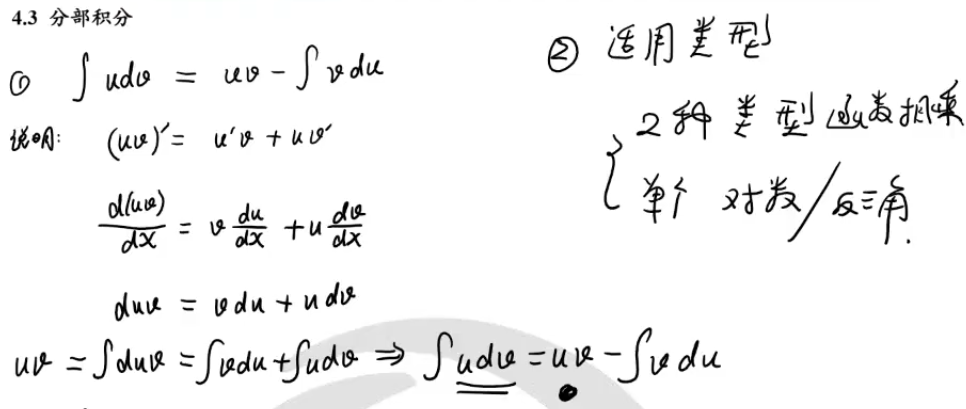 4.3 分部积分
① ∫ u dv = uv - ∫ v du
说明: (uv)' = u'v + uv'
d(uv)/dx = v du/dx + u dv/dx
duv = v du + u dv
uv = ∫duv = ∫vdu + ∫udv ⇒ ∫udv = uv - ∫v du
② 适用类型
{ 2种类型函数相乘
单个 对数/反三角.